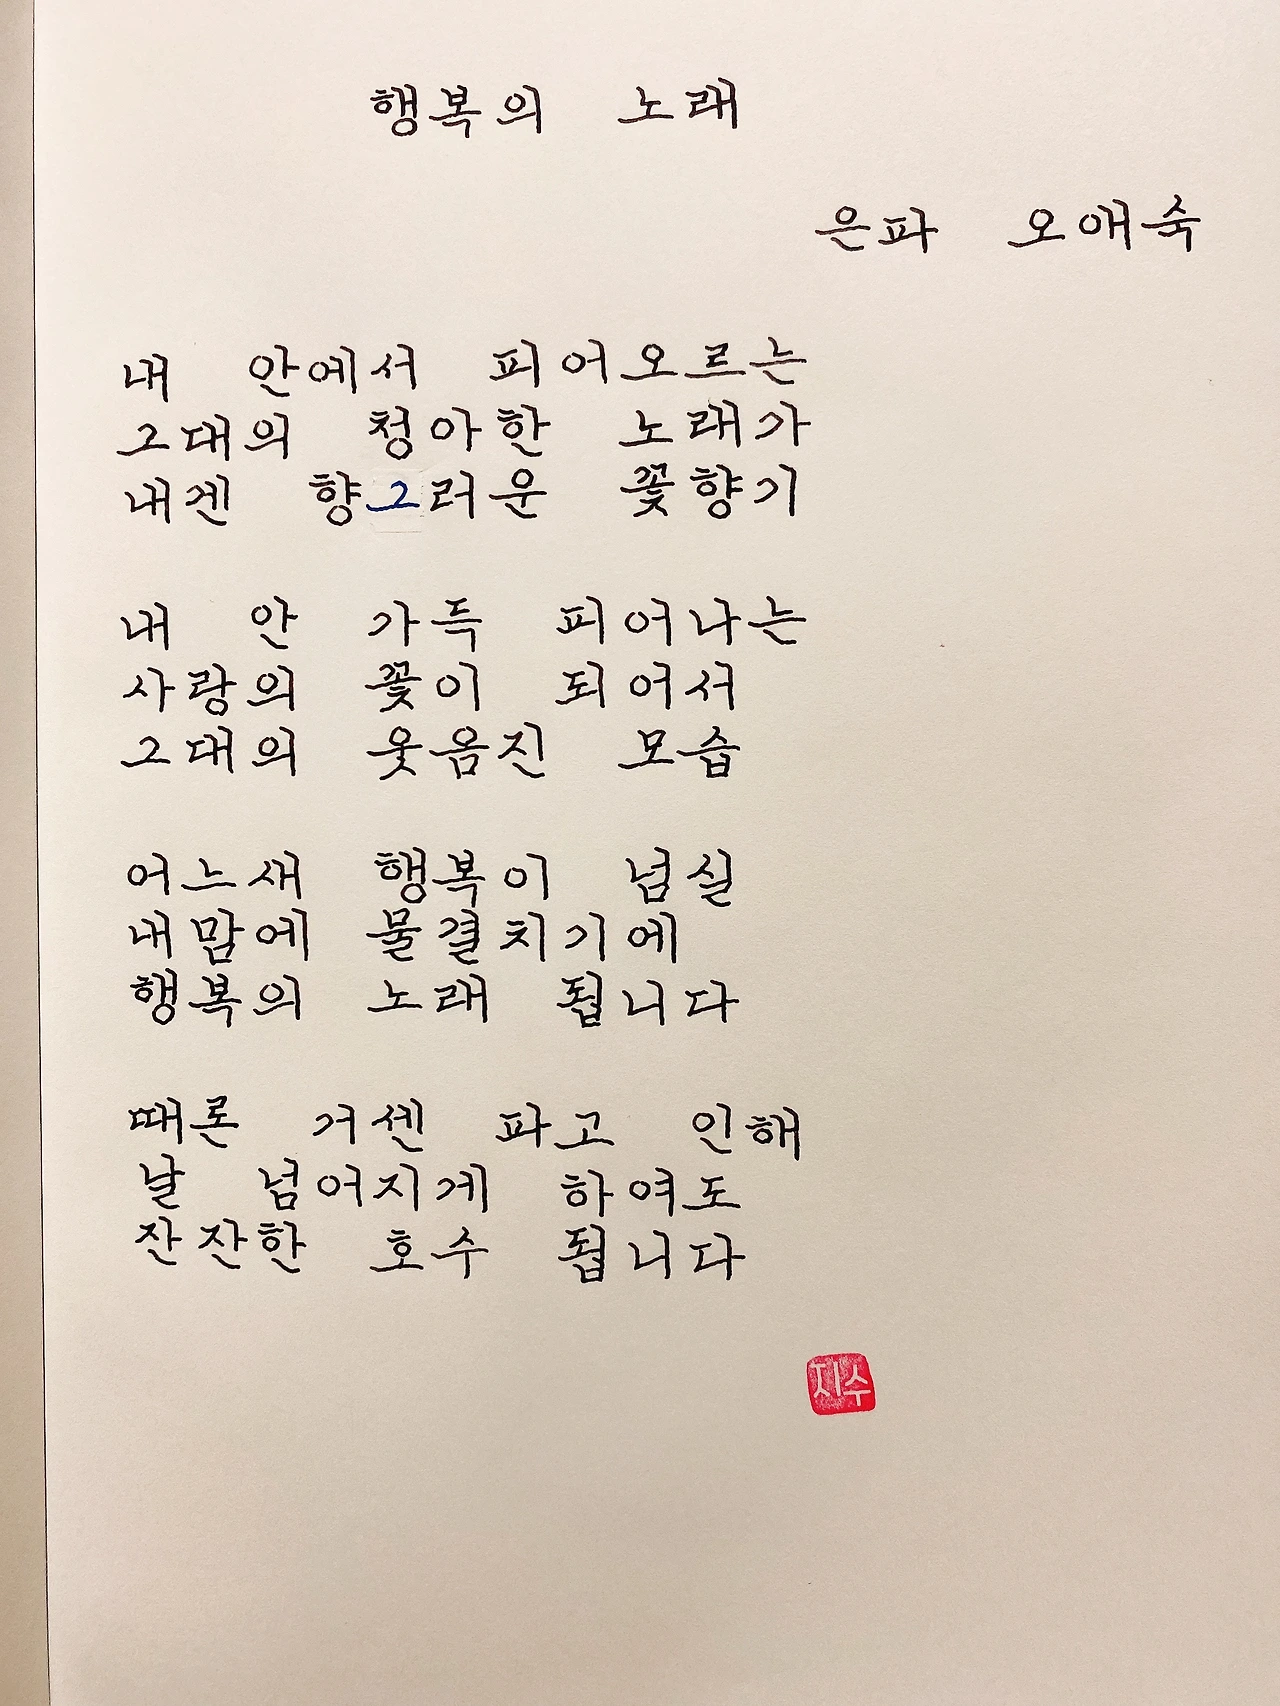 행복의 노래
은파 오애숙
내 안에서 피어오르는
그대의 청아한 노래가
내겐 향그러운 꽃향기
내 안 가득 피어나는
사랑의 꽃이 되어서
그대의 웃옴진 모습
어느새 행복이 넘실
내맘에 물결치기에
행복의 노래 됩니다
때론 거센 파고 인해
날 넘어지게 하여도
잔잔한 호수 됩니다
지수